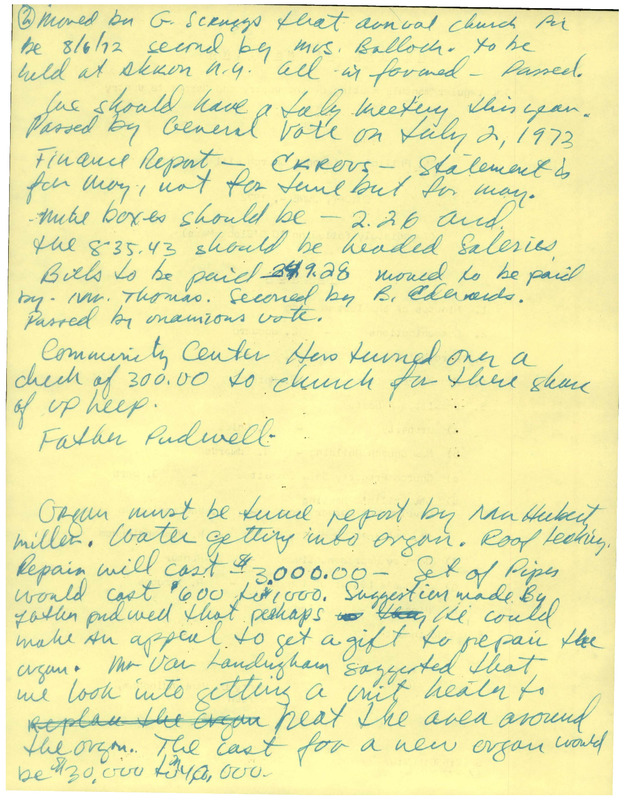 ② Moved by G. Scruggs that annual church Pic
be 8/6/72 second by Mrs. Bulloch. To be
held at Akron N.Y. all in favored - Passed.
We should have a July meeting this year.
Passed by General Vote on July 2, 1972
Finance Report - Statement is
for May, not for June but for may.
Mite boxes should be - 2.26 and
the 835.43 should be headed Saleries
Bills to be paid 249.28 moved to be paid
by. Mr. Thomas. Seconed by B. Edwards.
Passed by unamious vote.
Community Center Has turned over a
check of 300.00 to church for there share
of up keep.
Father Pudwell.
Organ must be tuned report by Mr Hubert
Miller. Water getting into organ. Roof leaking.
Repair will cost $3,000.00 - Set of Pipes
would cost $600 to $1,000. Suggestion made By
Father pudwell that perhaps he could
make an appeal to get a gift to repair the
organ. Mr Van Landingham suggested that
we look into getting a unit heater to
replace the organ heat the area around
the organ. The cost for a new organ would
be $30,000 to $40,000-